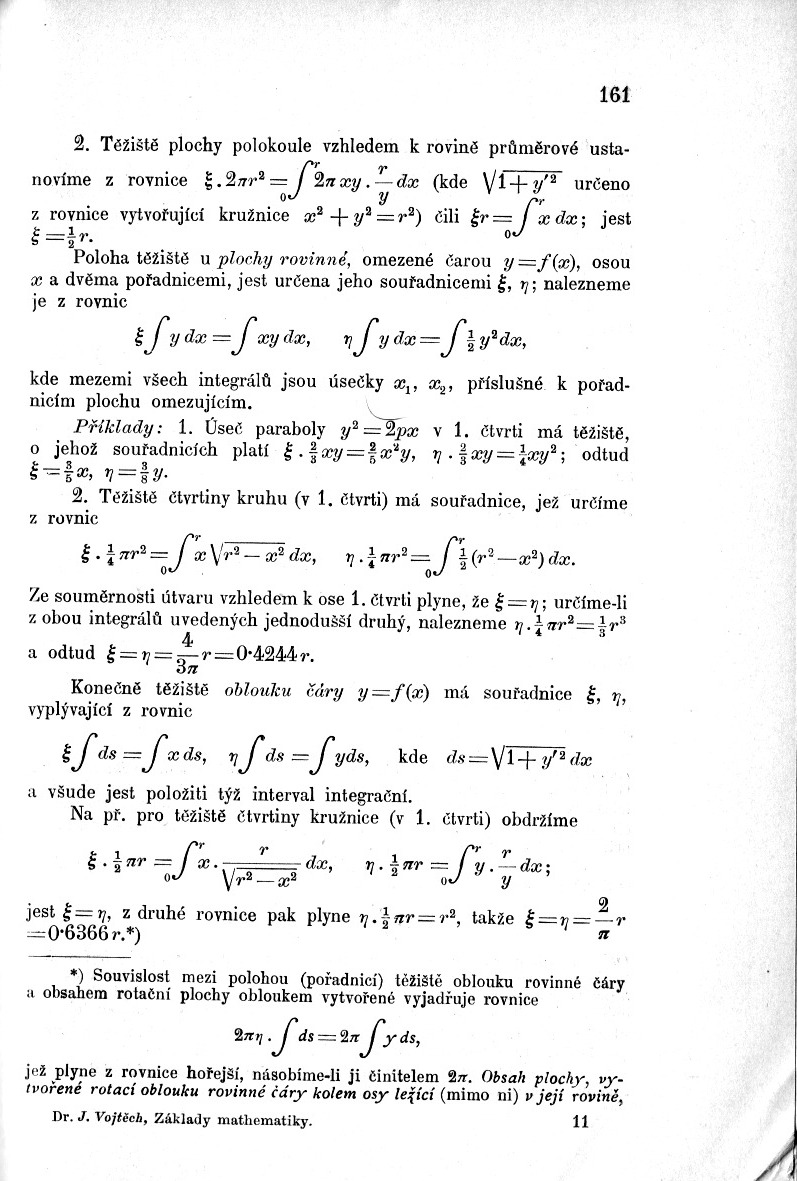 161
2. Těžiště plochy polokoule vzhledem k rovině průměrové usta-
novíme z rovnice ξ.2πr² = ₀∫ʳ 2πxy . r/y dx (kde √(1+y′²) určeno
z rovnice vytvořující kružnice x² + y² = r²) čili ξr = ₀∫ʳ x dx; jest
ξ = ½r.
Poloha těžiště u plochy rovinné, omezené čarou y = f(x), osou
x a dvěma pořadnicemi, jest určena jeho souřadnicemi ξ, η; nalezneme
je z rovnic
ξ∫y dx = ∫xy dx, η∫y dx = ∫½y²dx,
kde mezemi všech integrálů jsou úsečky x₁, x₂, příslušné k pořad-
nicím plochu omezujícím.
Příklady: 1. Úseč paraboly y² = 2px v 1. čtvrti má těžiště,
o jehož souřadnicích platí ξ . ⅔xy = ⅖x²y, η . ⅔xy = ¼xy²; odtud
ξ = ⅗x, η = ⅜y.
2. Těžiště čtvrtiny kruhu (v 1. čtvrti) má souřadnice, jež určíme
z rovnic
ξ . ¼πr² = ₀∫ʳ x√(r² — x²) dx, η . ¼πr² = ₀∫ʳ ½(r² — x²) dx.
Ze souměrnosti útvaru vzhledem k ose 1. čtvrti plyne, že ξ = η; určíme-li
z obou integrálů uvedených jednodušší druhý, nalezneme η . ¼πr² = ⅓r³
a odtud ξ = η = 4/3π r = 0·4244r.
Konečně těžiště oblouku čáry y = f(x) má souřadnice ξ, η,
vyplývající z rovnic
ξ∫ds = ∫x ds, η∫ds = ∫yds, kde ds = √(1+y′²) dx
a všude jest položiti týž interval integrační.
Na př. pro těžiště čtvrtiny kružnice (v 1. čtvrti) obdržíme
ξ . ½πr = ₀∫ʳ x . r/√(r² — x²) dx, η . ½πr = ₀∫ʳ y . r/y dx;
jest ξ = η, z druhé rovnice pak plyne η . ½πr = r², takže ξ = η = 2/π r
= 0·6366 r.*)
*) Souvislost mezi polohou (pořadnicí) těžiště oblouku rovinné čáry
a obsahem rotační plochy obloukem vytvořené vyjadřuje rovnice
2πη . ∫ds = 2π∫y ds,
jež plyne z rovnice hořejší, násobíme-li ji činitelem 2π. Obsah plochy, vy-
tvořené rotací oblouku rovinné čáry kolem osy ležící (mimo ni) v její rovině,
Dr. J. Vojtěch, Základy mathematiky. 11